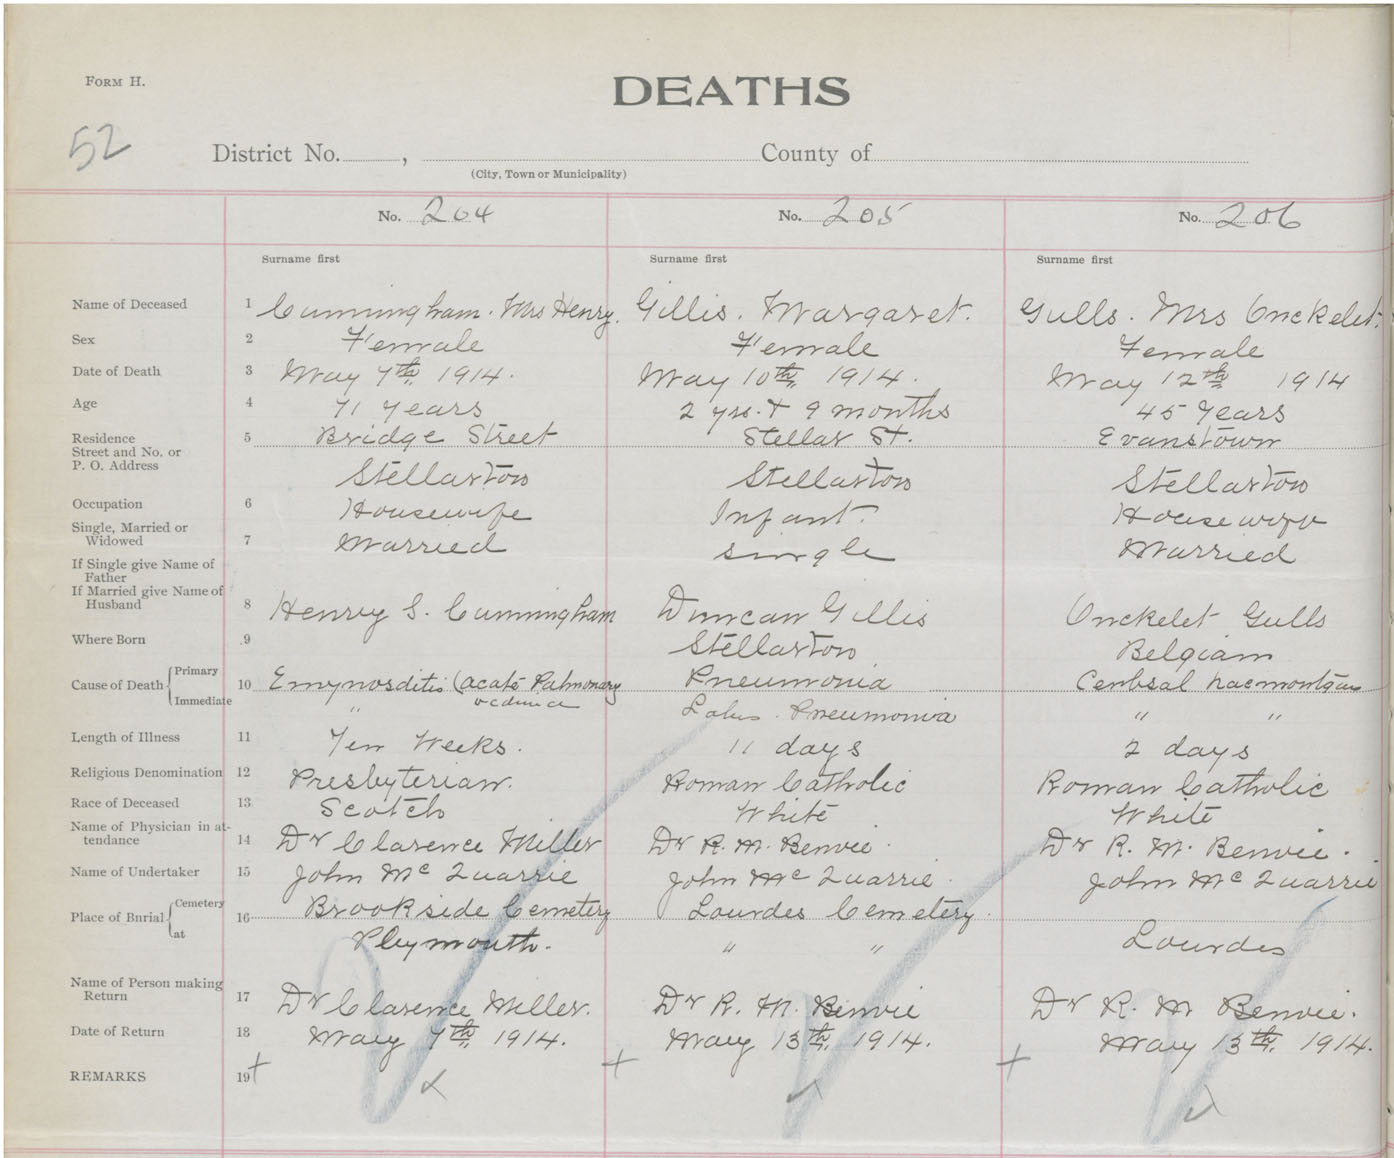 FORM H.
DEATHS
52
District No. , County of
(City, Town or Municipality)
No. 204 No. 205 No. 206
Surname first Surname first Surname first
Name of Deceased 1 Cunningham. Mrs Henry. Gillis. Margaret. Gulls. Mrs Onckelet.
Sex 2 Female Female Female
Date of Death 3 May 7th 1914. May 10th 1914. May 12th 1914
Age 4 71 years 2 yrs. + 9 months 45 Years
Residence 5 Bridge Street Stellar St. Evanstown
Street and No. or
P. O. Address Stellarton Stellarton Stellarton
Occupation 6 Housewife Infant. Housewife
Single, Married or
Widowed 7 Married single Married
If Single give Name of
Father
If Married give Name of
Husband 8 Henry S. Cunningham Duncan Gillis Onckelet Gulls
Where Born 9 Stellarton Belgiam
Cause of Death Primary 10 (acute Pulmonary Pneumonia
Immediate " Pneumonia " "
Length of Illness 11 Ten Weeks. 11 days 2 days
Religious Denomination 12 Presbyterian. Roman Catholic Roman Catholic
Race of Deceased 13 Scotch White White
Name of Physician in at-
tendance 14 Dr Clarence Miller Dr R. M. Benvie. Dr R. M. Benvie.
Name of Undertaker 15 John McQuarrie John McQuarrie. John McQuarrie
Place of Burial Cemetery 16 Brookside Cemetery Lourdes Cemetery.
at Plymouth. " " Lourdes
Name of Person making
Return 17 Dr Clarence Miller. Dr R. M. Benvie Dr R. M Benvie.
Date of Return 18 May 7th 1914. May 13th 1914. May 13th 1914.
REMARKS 19